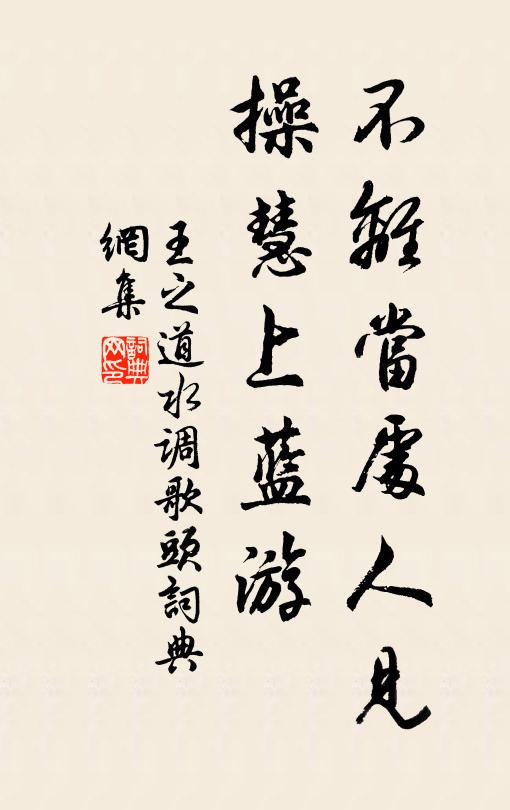 不離當處人見
操慧上藍游
王之道水调歌頭詞典
網集
詞典網印